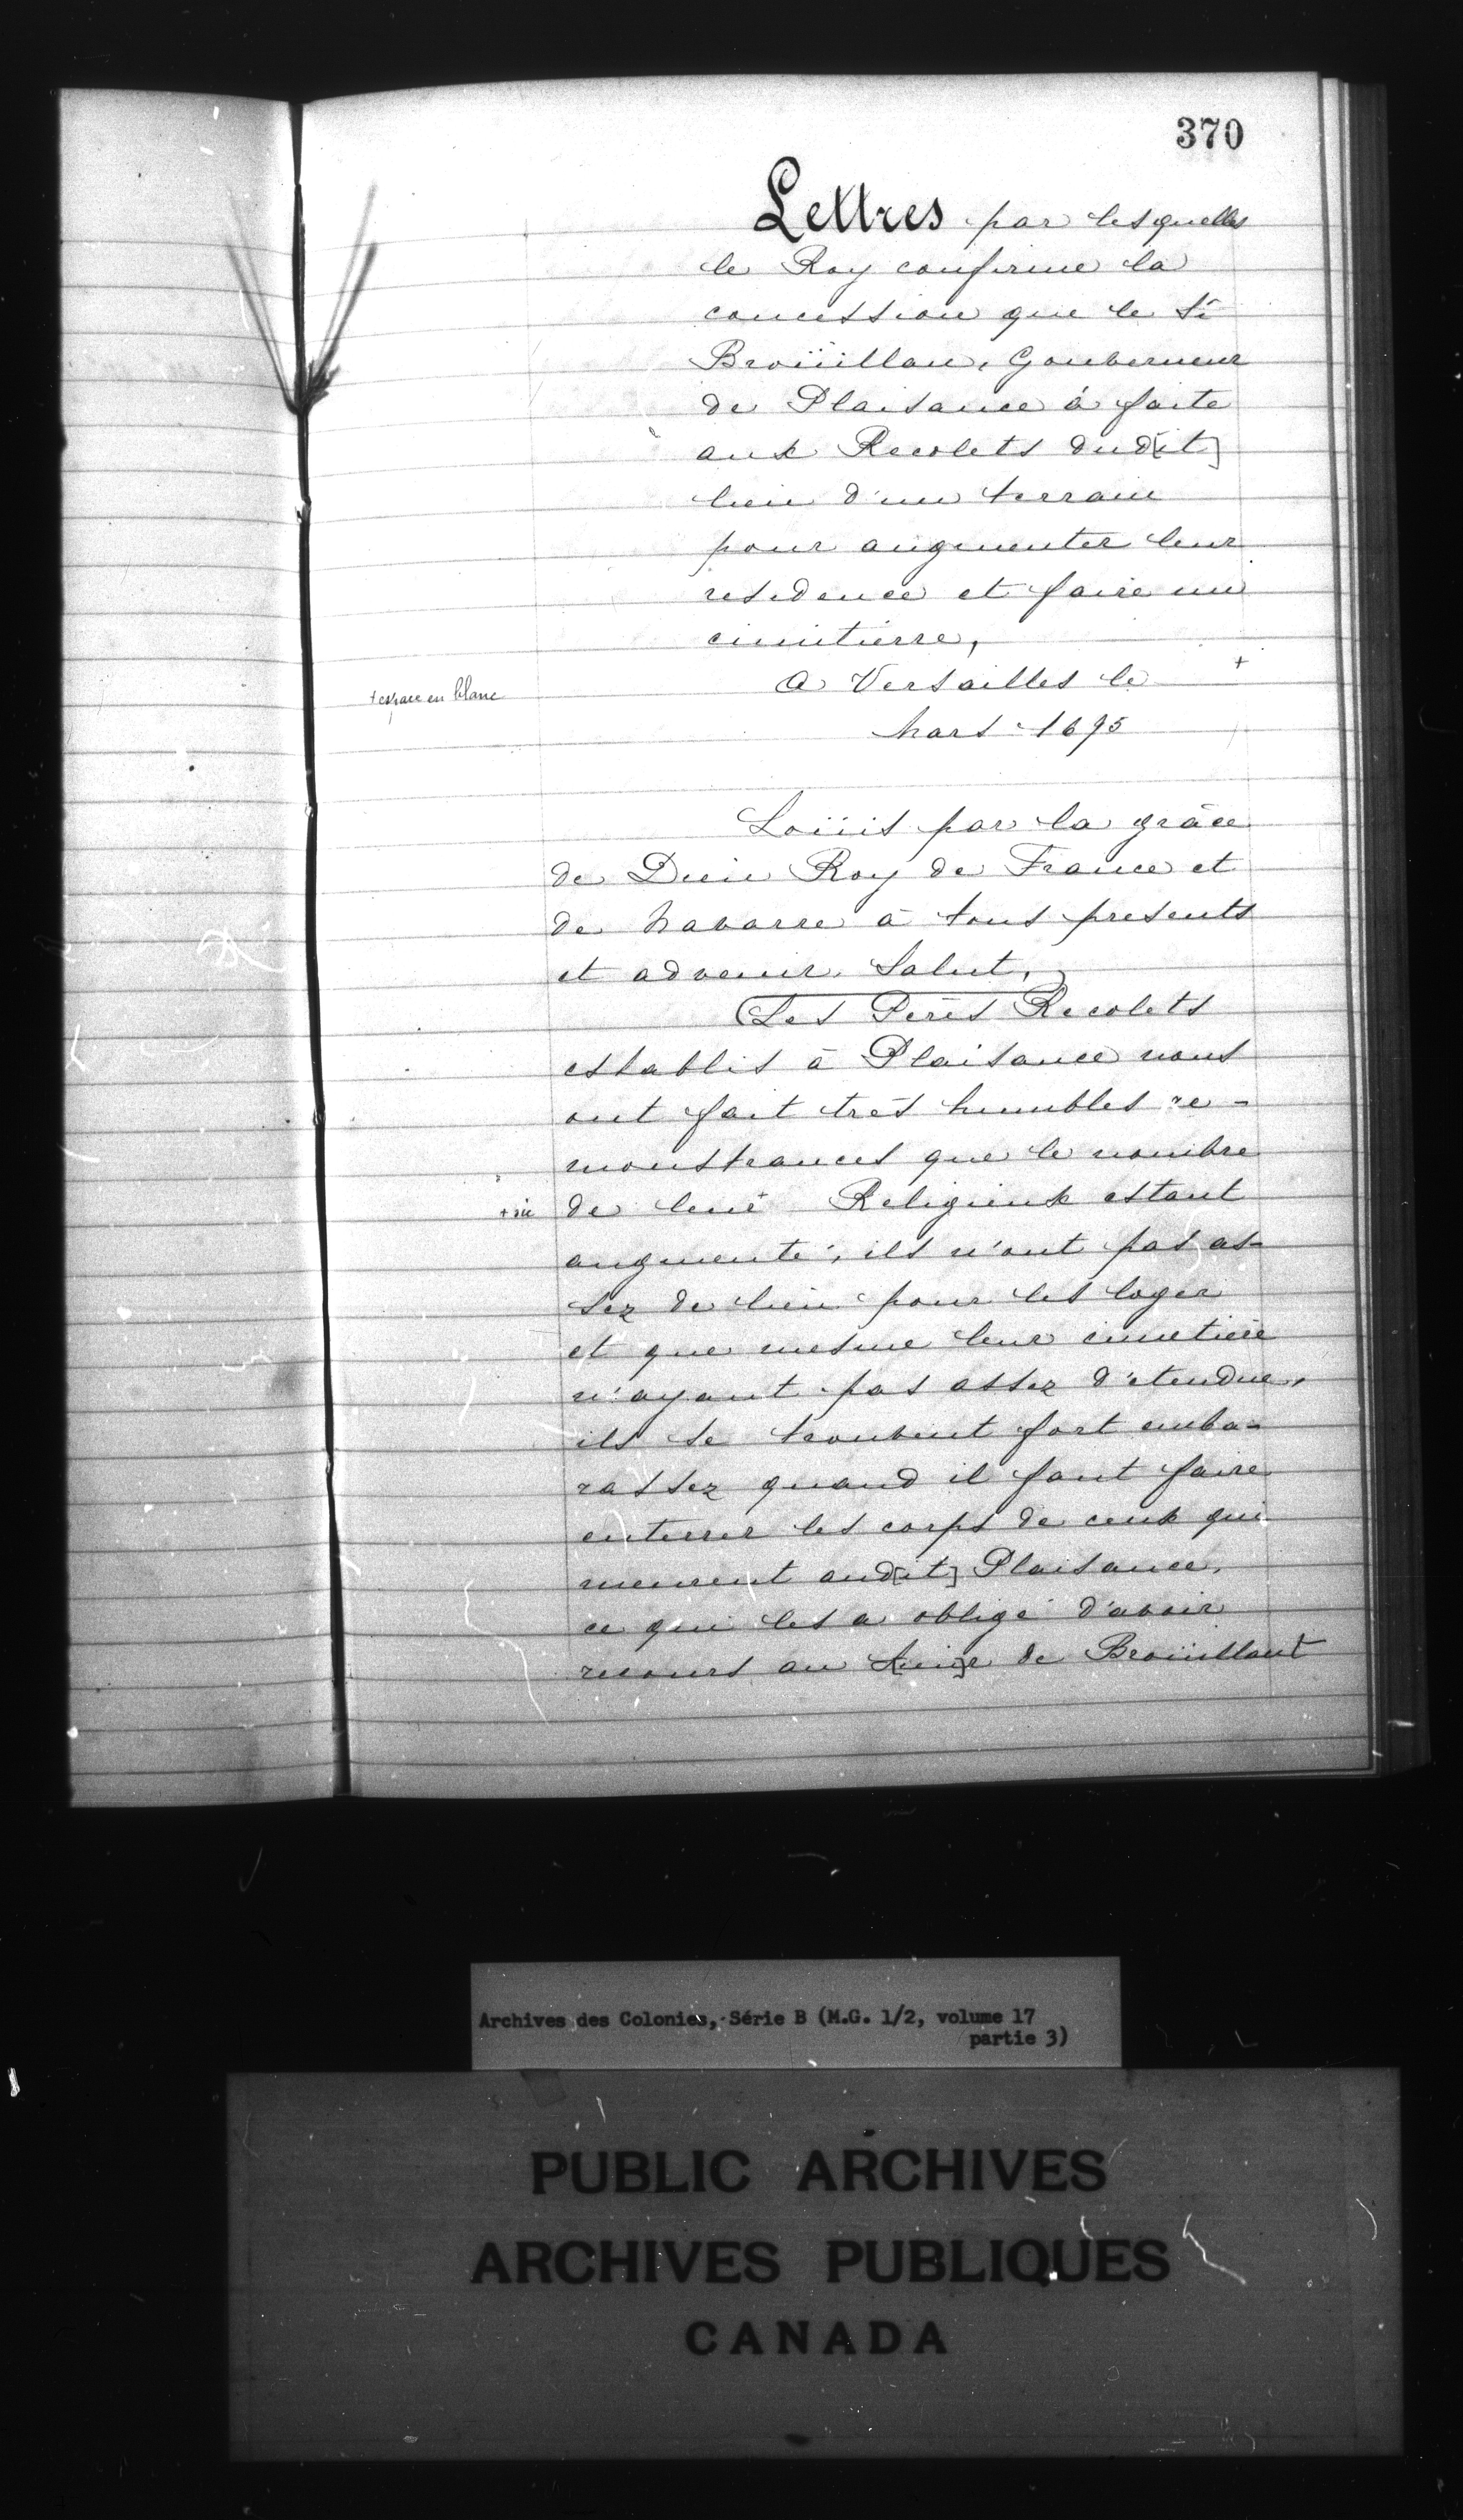 370
Lettres par lesquelles
le Roy confirme la
concession que le Sr
Broüillan, Gouverneur
de Plaisance à faite
aux Recolets dud[it]
lieu d'un terrain
pour augmenter leur
residence et faire un
cimitierre,
A Versailles le +
+ espace en blanc
Mars 1695
Loüis par la grâce
de Dieu Roy de France et
de Navarre à tous presents
et advenir. Salut,
Les Peres Recolets
establis à Plaisance nous
ont fait tres humbles re-
monstrances que le nombre
+ sic
de leur+ Religieux estant
augmenté, ils n'ont pas as-
sez de lieu pour les loger
et que mesme leur cimetiere
n'ayant pas assez d'etendue,
ils se trouvent fort emba-
rassez quand il faut faire
enterrer les corps de ceux qui
meurent aud[it] Plaisance,
ce qui les a obligé d'avoir
recours au S[ieu]r de Broüillant
Archives des Colonies, Série B (M.G. 1/2, volume 17
partie 3)
PUBLIC ARCHIVES
ARCHIVES PUBLIQUES
CANADA